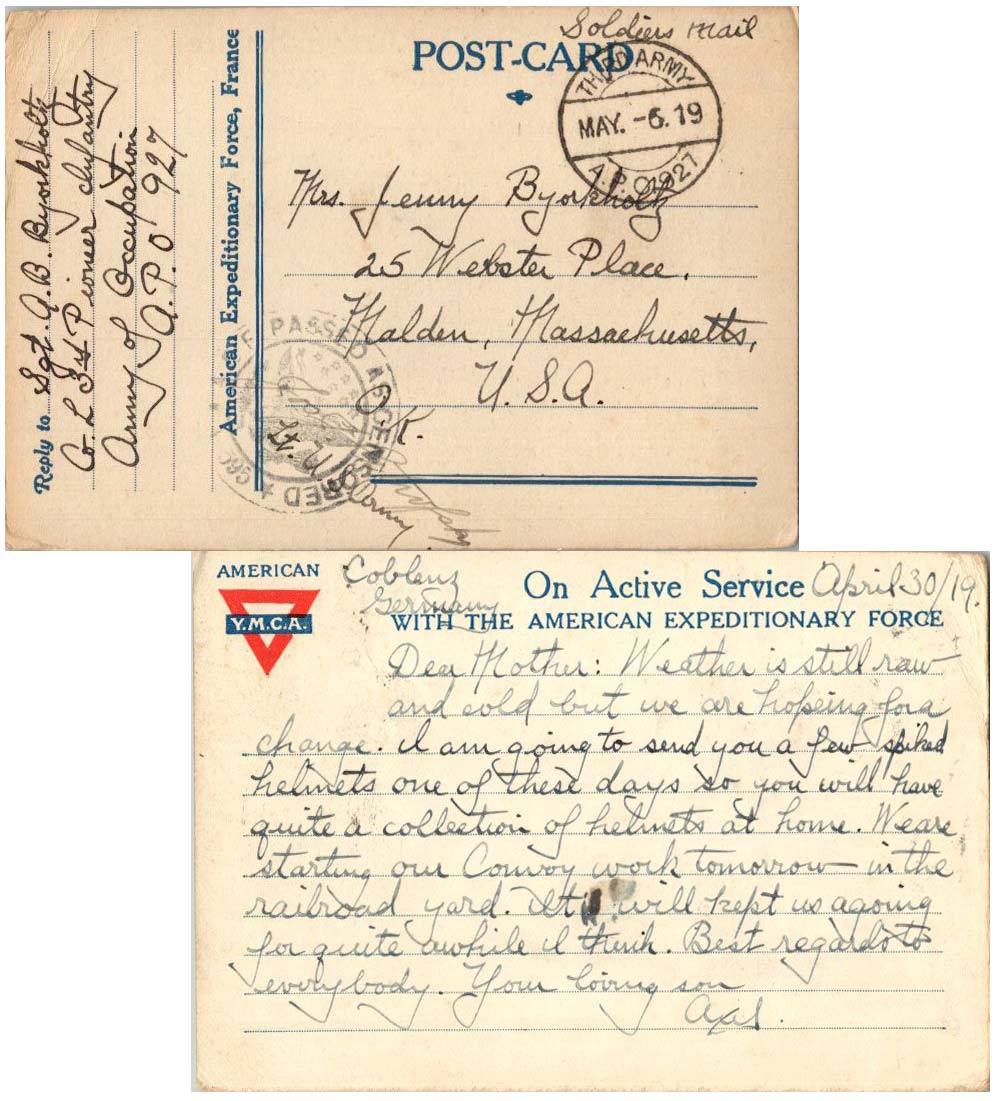 Soldiers Mail
POST-CARD
THIRD ARMY
MAY. -6. 19
A.P.O. 927
Mrs. Jenny Byorkholtz
25 Webster Place,
Malden, Massachusetts,
U. S. A.
O.K.
PASSED AS CENSORED
American Expeditionary Force, France
Reply to Sgt. A. B. Byorkholtz
Co. L 3rd Pioneer Infantry
Army of Occupation
A.P.O. 927
AMERICAN
Y.M.C.A.
Coblenz
Germany
On Active Service April 30/19.
WITH THE AMERICAN EXPEDITIONARY FORCE
Dear Mother: Weather is still raw
and cold but we are hopeing for a
change. I am going to send you a few spiked
helmets one of these days so you will have
quite a collection of helmets at home. We are
starting our Convoy work tomorrow in the
railroad yard. It will kept us agoing
for quite awhile I think. Best regards to
everybody. Your loving son
Axel.